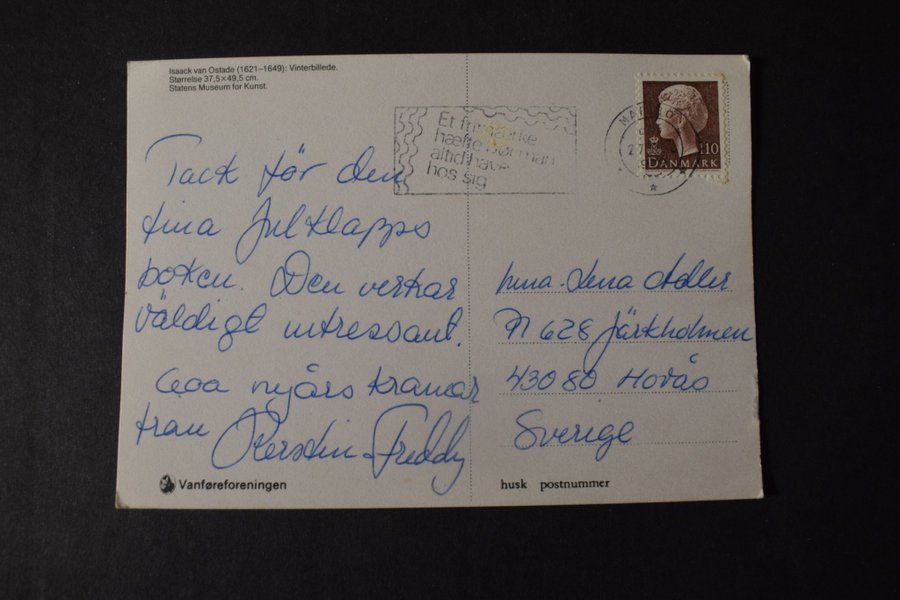 Isaack van Ostade (1621–1649): Vinterbillede.
Størrelse 37,5×49,5 cm.
Statens Museum for Kunst.
Et frimærke
hæfte bør man
altid have
hos sig
110
DANMARK
Tack för den
fina Julklapps
boken. Den verkar
väldigt intressant.
Goa nyårs kramar
från Kerstin-Freddy
Anna-Lena Adler
Pl 628 Järkholmen
430 80 Hovås
Sverige
Vanføreforeningen
husk postnummer